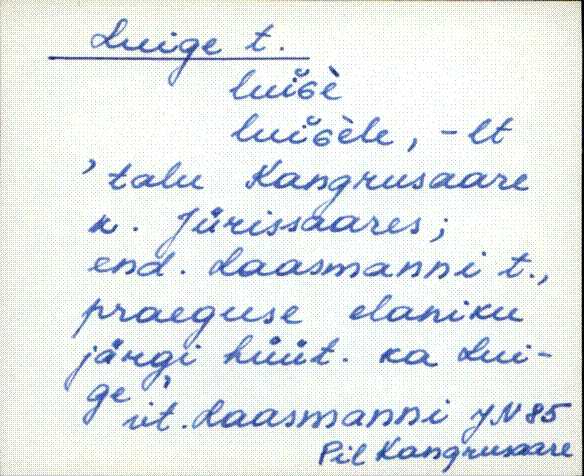 Luige t.
luiɢè
luiɢèle, -lt
'talu Kangrusaare
k. Jürissaares;
end. Laasmanni t.,
praeguse elaniku
järgi hüüt. ka Lui-
ge'
vt. Laasmanni JN 85
Pil Kangrusaare